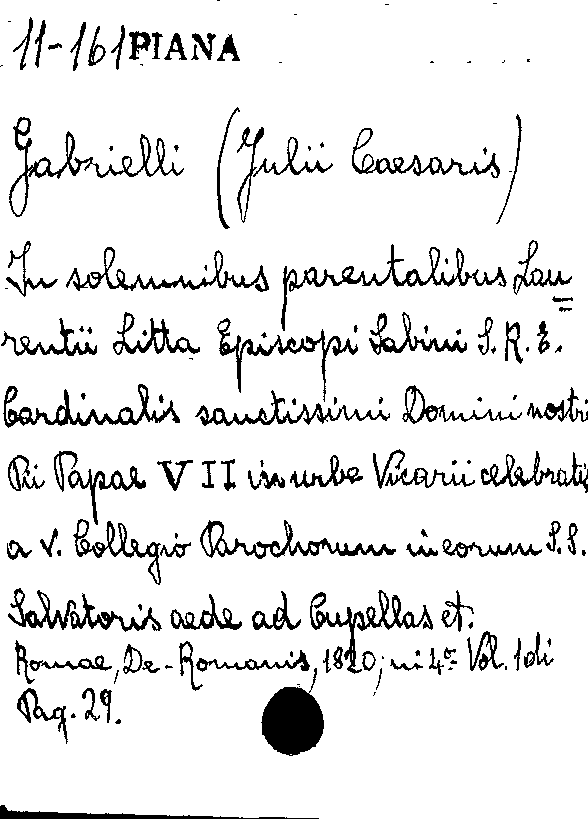 11-161 PIANA
Gabrielli (Julii Caesaris)
In solemnibus parentalibus Lau=
rentii Litta Episcopi Sabini S. R. E.
Cardinalis sanctissimi Domini nostri
Pii Papae VII in urbe Vicarii celebratis
a v. Collegio Parochorum in eorum S.S.
Salvatoris aede ad Cupellas et.
Romae, De-Romanis, 1820; in 4º Vol. 1 di
Pag. 29.